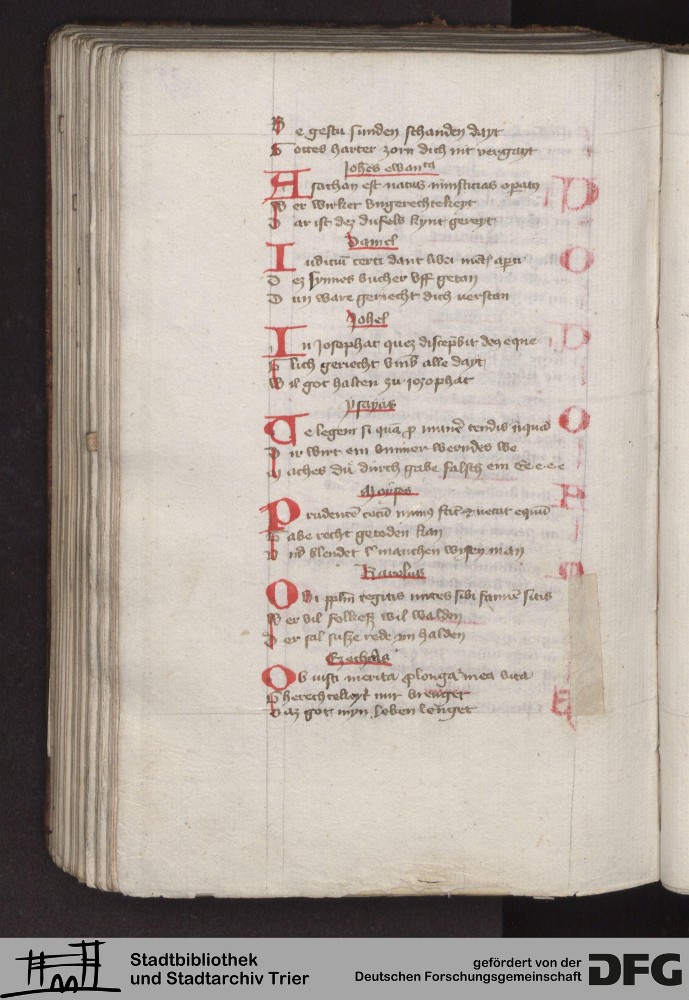 B e gestu sunden schanden dayt
G ottes harter zorn dich nit vergayt
Johes ewanta
A sathan est natus iniusticias
W er wirket ungerechtekeyt
D ar ist dez dufels kynt gereyt
Daniel
I udicium certi dant libri
D ez synnes bucher uff getan
D un ware geriecht dich verstan
Johel
I n Josophat
G lich geriecht umb alle dayt
W il got halten zu iozophat
ysayas
T e legem si qua p munere tendis
D ir wirt ein ummer werndes we
M aches du durch gabe falsch ein Ee e e e
Moyses
P rudentem
G abe recht getoden kan
V nd blendet manchen wysen man
Karolus
O
W er vil folkesz wil walden
D er sal susze rede yn halden
Ezechias
O b iusti merita plonga mea vita
G herechtekeyt mir brenget
D az got myn leben lenget
Stadtbibliothek
und Stadtarchiv Trier
gefördert von der
Deutschen Forschungsgemeinschaft
DFG